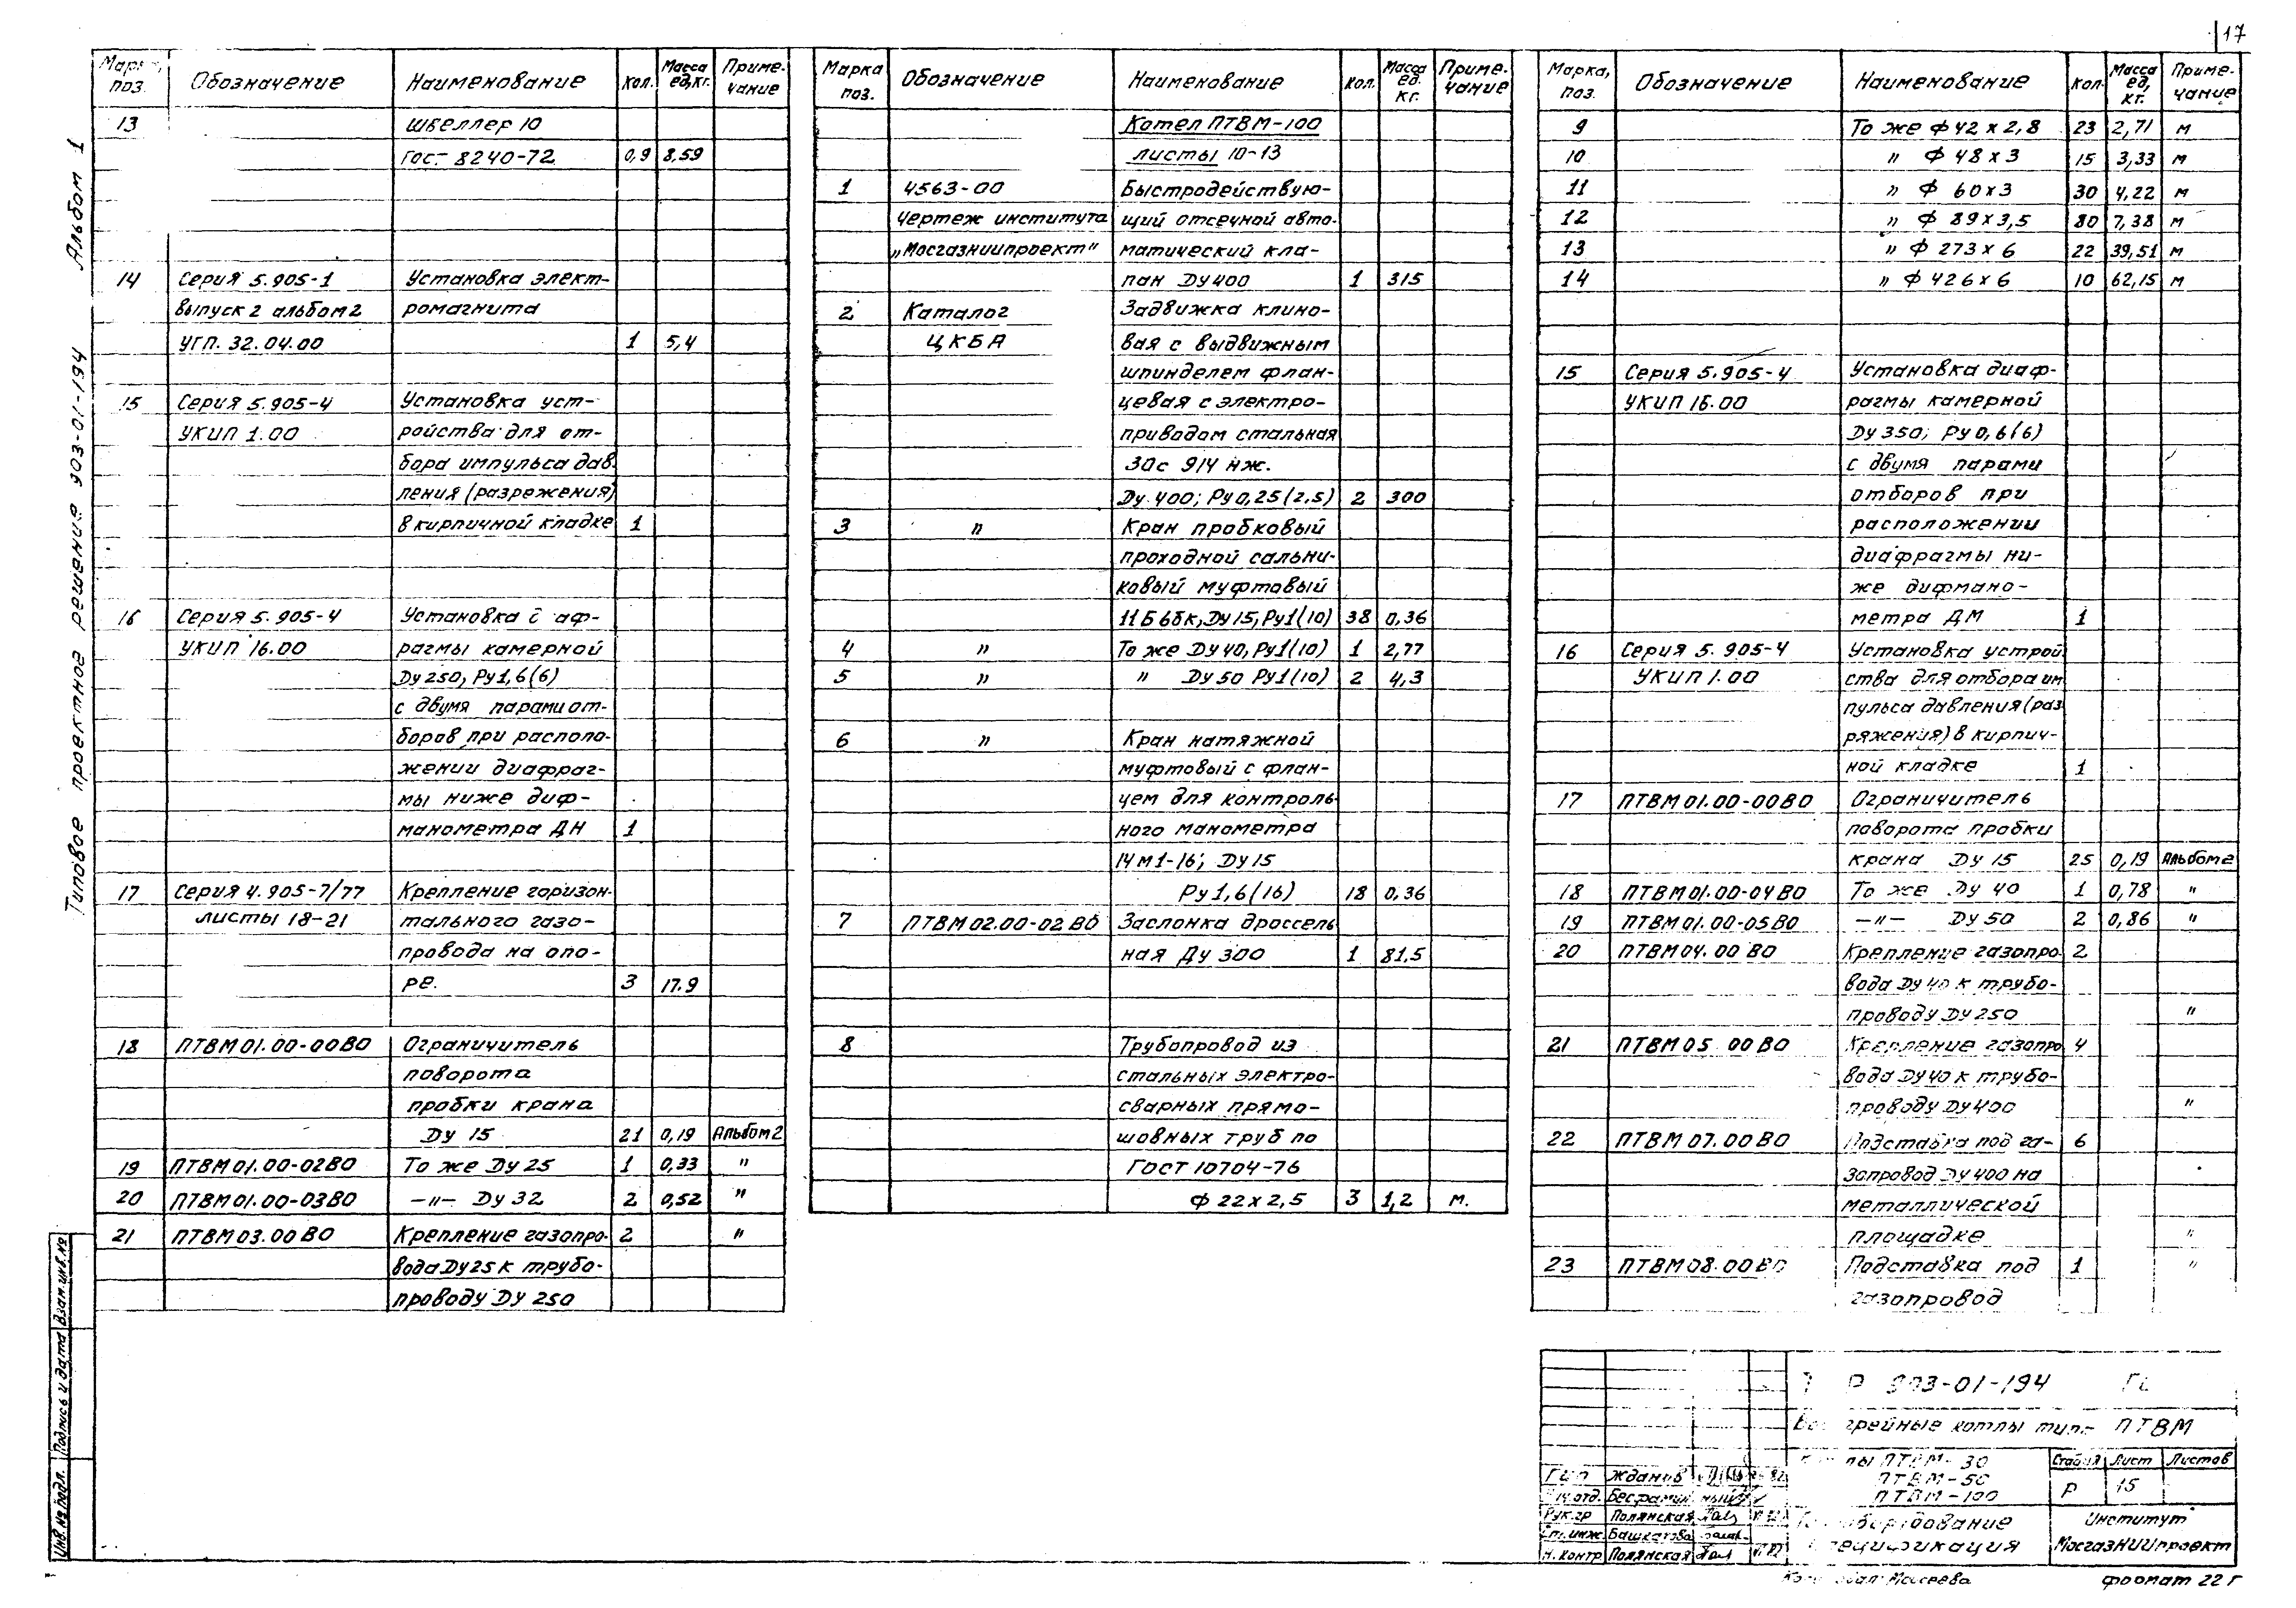 17
Альбом 1
Типовое проектное решение 903-01-194
Марка, поз. Обозначение Наименование Кол. Масса ед,кг. Приме-чание
13 Швеллер 10
Гост 8240-72 0,9 8,59
14 Серия 5.905-1 Установка элект-
выпуск 2 альбом 2 ромагнита
УГП. 32.04.00 1 5,4
15 Серия 5.905-4 Установка уст-
УКИП 1.00 ройства для от-
бора импульса дав
ления (разрежения)
в кирпичной кладке 1
16 Серия 5.905-4 Установка аф-
УКИП 16.00 рагмы камерной
Ду 250, Ру 1,6(6)
с двумя парами от-
боров при располо-
жении диафраг-
мы ниже диф-
манометра ДН 1
17 Серия 4.905-7/77 Крепление горизон-
листы 18-21 тального газо-
провода на опо-
ре. 3 17.9
18 ПТВМ 01.00-00ВО Ограничитель
поворота
пробки крана
Ду 15 21 0,19 Альбом 2
19 ПТВМ 01.00-02ВО То же Ду 25 1 0,33 "
20 ПТВМ 01.00-03ВО —"— Ду 32 2 0,52 "
21 ПТВМ 03.00 ВО Крепление газопро- 2 "
вода Ду 25 к трубо-
проводу Ду 250
Марка поз. Обозначение Наименование Кол. Масса ед. кг. Приме-чание
Котел ПТВМ-100
листы 10-13
1 4563-00 Быстродействую-
Чертеж института щий отсечной авто-
„Мосгазниипроект" матический кла-
пан Ду 400 1 315
2 Каталог Задвижка клино-
ЦКБА вая с выдвижным
шпинделем флан-
цевая с электро-
приводом стальная
30с 914 нж.
Ду 400; Ру 0,25(2,5) 2 300
3 " Кран пробковый
проходной сальни-
ковый муфтовый
11Б 6бк, Ду 15, Ру1(10) 38 0,36
4 " То же Ду 40, Ру1(10) 1 2,77
5 " " Ду 50 Ру1(10) 2 4,3
6 " Кран натяжной
муфтовый с флан-
цем для контроль-
ного манометра
14М1-16; Ду 15
Ру 1,6(16) 18 0,36
7 ПТВМ 02.00-02 ВО Заслонка дроссель
ная Ду 300 1 81,5
8 Трубопровод из
стальных электро-
сварных прямо-
шовных труб по
ГОСТ 10704-76
Ф 22 х 2,5 3 1,2 м.
Марка, поз. Обозначение Наименование Кол. Масса ед, кг. Приме-чание
9 То же Ф 42 х 2,8 23 2,71 м
10 " Ф 48 х 3 15 3,33 м
11 " Ф 60х3 30 4,22 м
12 " Ф 89х3,5 80 7,38 м
13 " Ф 273х6 22 39,51 м
14 " Ф 426х6 10 62,15 м
15 Серия 5.905-4 Установка диаф-
УКИП 16.00 рагмы камерной
Ду 350; Ру 0,6(6)
с двумя парами
отборов при
расположении
диафрагмы ни-
же дифмано-
метра ДМ 1
16 Серия 5.905-4 Установка устрой
УКИП 1.00 ства для отбора им
пульса давления (раз
ряжения) в кирпич-
ной кладке 1
17 ПТВМ 01.00-00ВО Ограничитель
поворота пробки
крана Ду 15 25 0,19 Альбом 2
18 ПТВМ 01.00-04 ВО То же Ду 40 1 0,78 "
19 ПТВМ 01.00-05ВО —"— Ду 50 2 0,86 "
20 ПТВМ 04.00 ВО Крепление газопро- 2
вода Ду 40 к трубо-
проводу Ду 250 "
21 ПТВМ 05 00 ВО Крепление газопро 4
вода Ду 40 к трубо-
проводу Ду 400 "
22 ПТВМ 07.00 ВО Подставка под га- 6
зопровод Ду 400 на
металлической
площадке "
23 ПТВМ 08.00 ВО Подставка под 1 "
газопровод
Р 903-01-194
грейные котлы типа ПТВМ
ПТВМ-30
ПТВМ-50
ПТВМ-100
Стадия Лист Листов
Р 15
Институт
МосгазНИИпроект
Гип Жданов
отд.
Рук.гр Полянская
инж. Башкатова
Н.контр Полянская
Моисеева
формат 22 г
Инв.№ подл. Подпись и дата Взам.инв.№